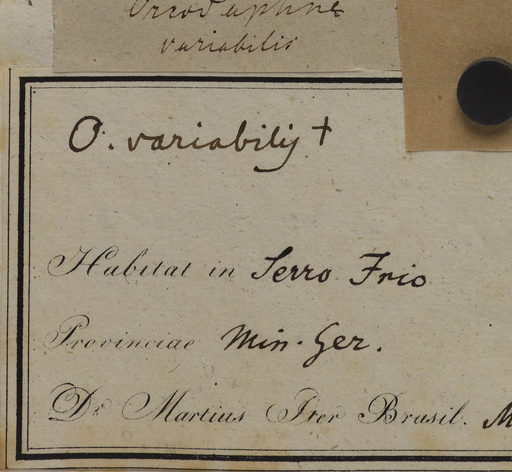 Oreodaphne
variabilis
O. variabilis †
Habitat in Serro Frio
Provinciae Min. Ger.
Dr. Martius Iter Brasil. M